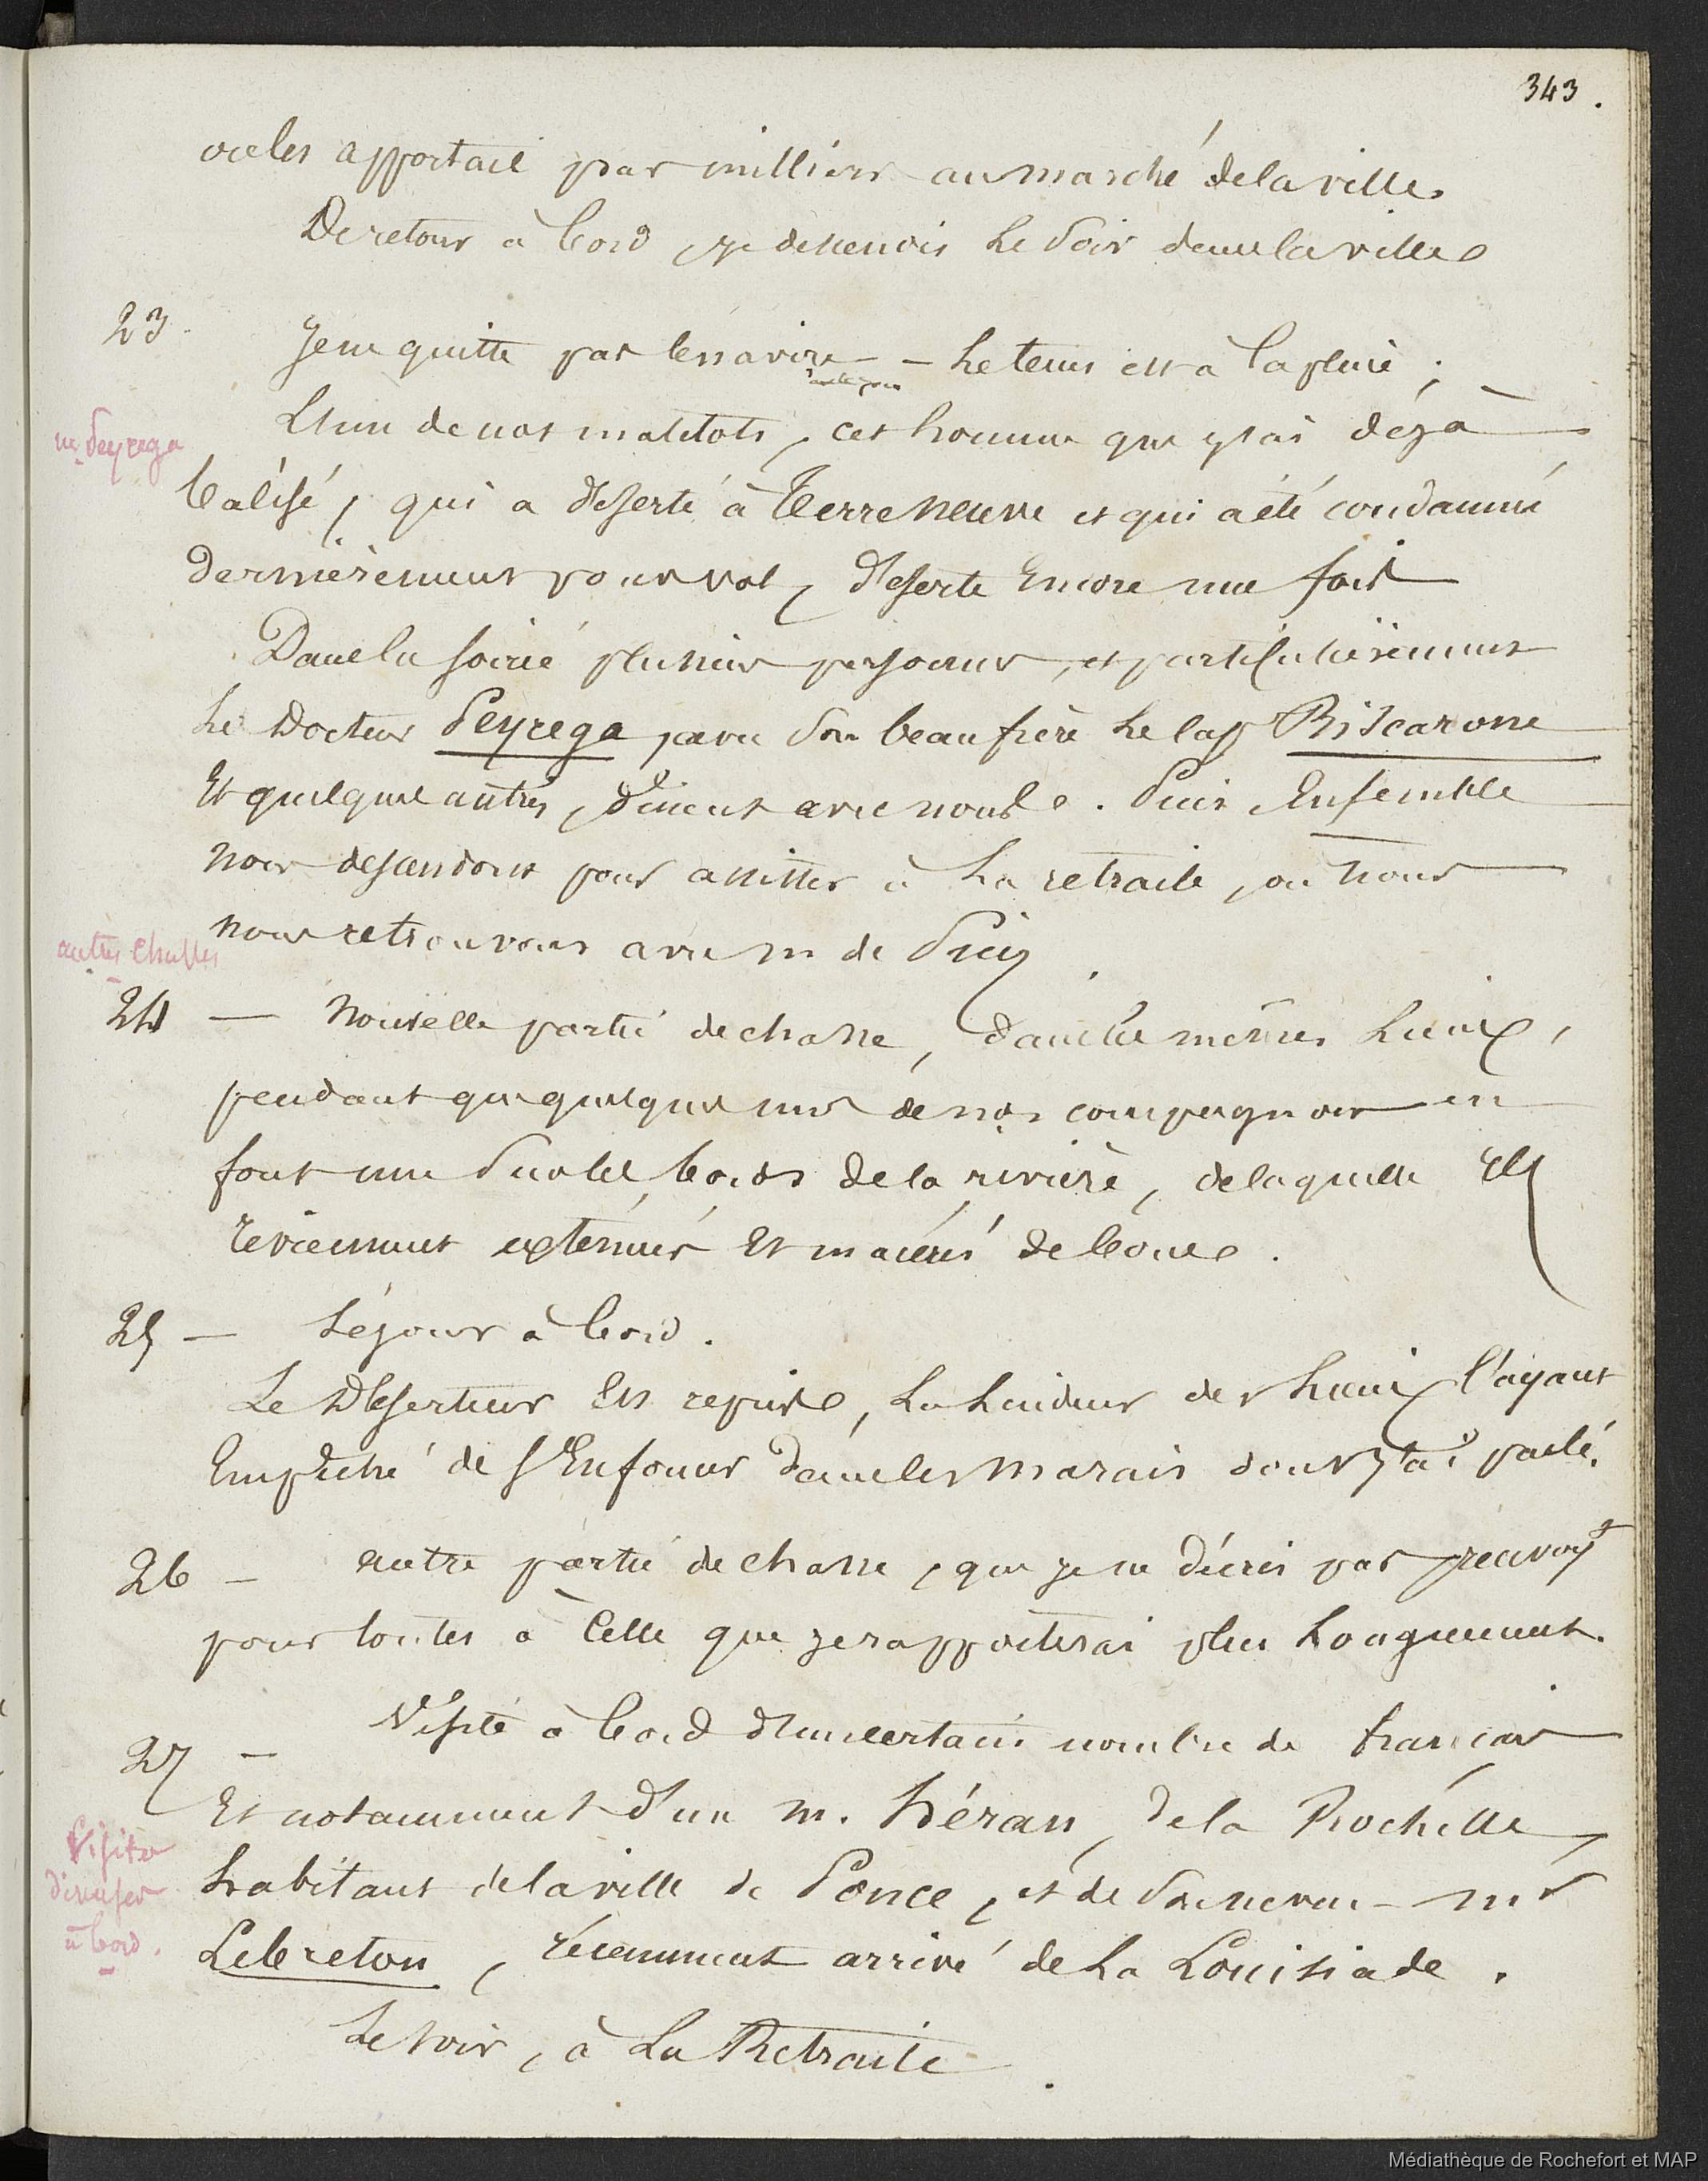 343.
on les apportait par milliers au marché de la ville
De retour à bord, je descendis le soir dans la ville
23.
Je ne quitte pas le navire - Le tems est à la pluie ;
m. Peyrega
L'un de nos matelots, cet homme que j'ai déjà
balisé, qui a déserté à Terre Neuve et qui a été condamné
dernièrement pour vol, déserte Encore une fois
Dans la soirée plusieurs personnes, et particulièrement
Le Docteur Peyrega, avec son beau frère Le cap Biscarone
Et quelques autres, dinent avec nous. Puis Ensemble
nous descendons pour assister à La retraite, où nous
nous retrouvons avec m de Puig.
autres chasses
24 — Nouvelle partie de chasse, dans les mêmes Lieux,
pendant que quelques uns de nos compagnons en
font une sur les bords de la rivière, de laquelle ils
reviennent exténués Et macérés de boue.
25 — Séjour à bord.
Le Déserteur Est repris, La Laideur des Lieux l'ayant
Empêché de s'Enfoncer dans les marais dont j'ai parlé.
26 — autre partie de chasse, que je ne décris pas renvoyt
pour toutes à Celle que je rapporterai plus Longuement.
27 — Visite à bord d'un certain nombre de français
Et notamment d'un m. Héran, de la Rochelle,
Visites
diverses
à bord.
habitant de la ville de Ponce, et de son neveu - mr
Lebreton, récemment arrivé de La Louisiade.
Le soir, à La Retraite.
Médiathèque de Rochefort et MAP